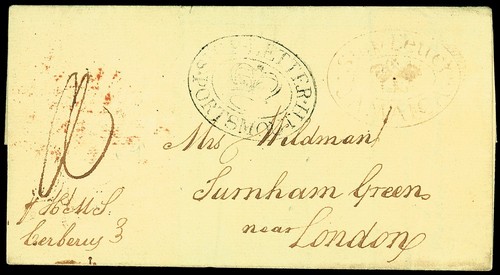 SHIP LETTER
PORTSMOUTH
Mrs Wildman
Turnham Green
near
London
H.M.S.
Cerberus